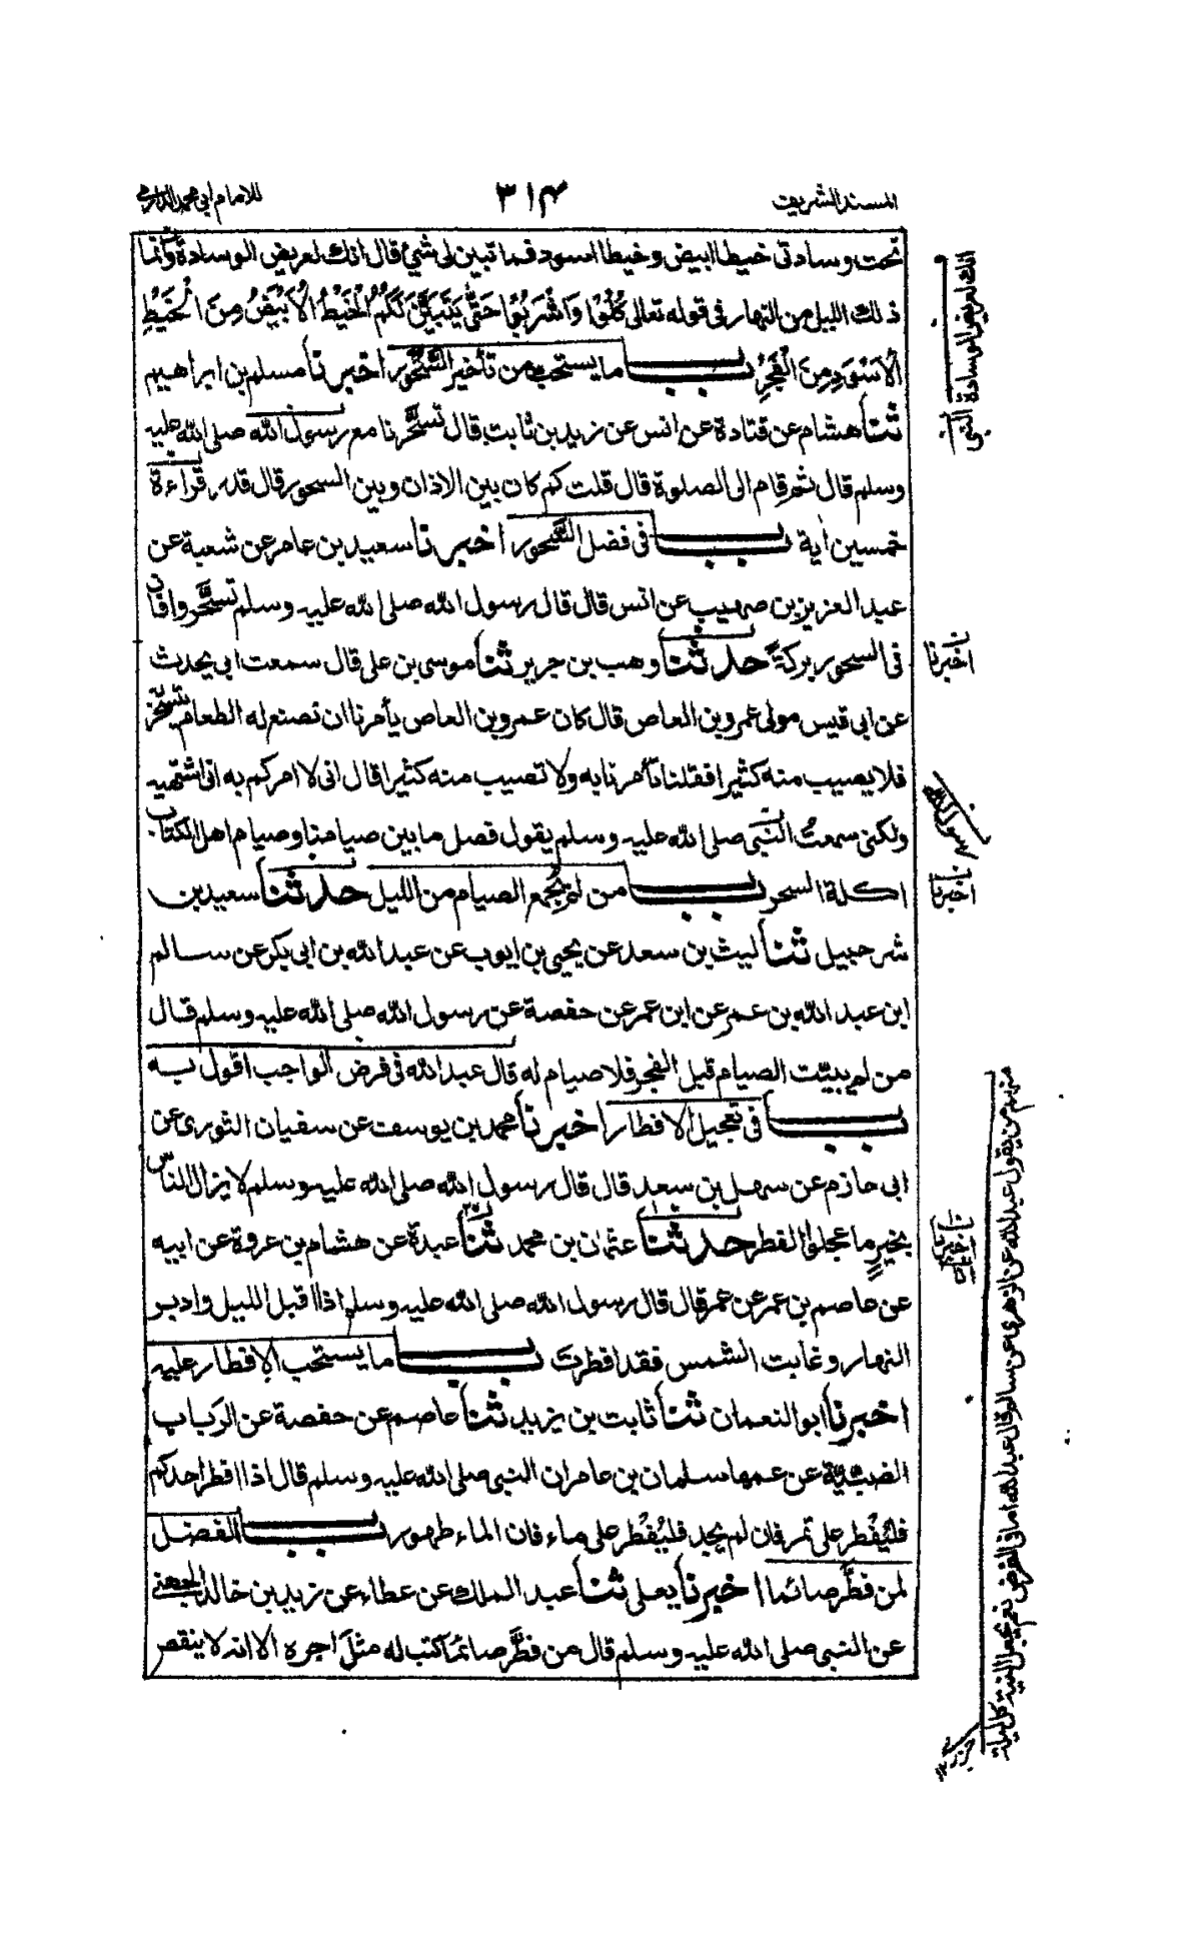 المسند الشريف
٣١٤
للامام ابي محمد الدارمي
تحت وسادتي خيطا ابيض وخيطا اسود فما تبين لي شيئ قال انك لعريض الوسادة وانما
ذلك الليل من النهار في قوله تعالى كُلُوْا وَاشْرَبُوْا حَتّٰى يَتَبَيَّنَ لَكُمُ الْخَيْطُ الْاَبْيَضُ مِنَ الْخَيْطِ
الْاَسْوَدِ مِنَ الْفَجْرِ بــاب ما يستحب من تأخير السُّحُور اخبرنا مسلم بن ابراهيم
ثنا هشام عن قتادة عن انس عن زيد بن ثابت قال تسحَّرنا مع رسول الله صلى الله عليه
وسلم قال ثم قام الى الصلوة قال قلت كم كان بين الاذان وبين السحور قال قدر قراءة
خمسين اٰية بــاب في فضل السُّحُور اخبرنا سعيد بن عامر عن شعبة عن
عبد العزيز بن صهيب عن انس قال قال رسول الله صلى الله عليه وسلم تسحَّروا فان
في السحور بركةً حدثنا وهب بن جرير ثنا موسى بن علي قال سمعت ابي يحدث
عن ابي قيس مولى عمرو بن العاص قال كان عمرو بن العاص يأمرنا ان نصنع له الطعام يتسحّر
فلا يصيب منه كثيرا فقلنا تأمرنا به ولا تصيب منه كثيرا قال اني لا امركم به اني اشتهيه
ولكني سمعتُ النبي صلى الله عليه وسلم يقول فصل ما بين صيامنا وصيام اهل الكتاب
اكلة السحر بــاب من لم يُجمع الصيام من الليل حدثنا سعيد بن
شرحبيل ثنا ليث بن سعد عن يحيى بن ايوب عن عبد الله بن ابي بكر عن سالم
ابن عبد الله بن عمر عن ابن عمر عن حفصة عن رسول الله صلى الله عليه وسلم قال
من لم يبيّت الصيام قبل الفجر فلا صيام له قال عبد الله في فرض الواجب اقول به
بــاب في تعجيل الافطار اخبرنا محمد بن يوسف عن سفيان الثوري عن
ابي حازم عن سهل بن سعد قال قال رسول الله صلى الله عليه وسلم لا يزال الناس
بخير ما عجلوا الفطر حدثنا عثمان بن محمد ثنا عبدة عن هشام بن عروة عن ابيه
عن عاصم بن عمر عن عمر قال قال رسول الله صلى الله عليه وسلم اذا اقبل الليل وادبر
النهار وغابت الشمس فقد افطرت بــاب ما يستحب الافطار عليه
اخبرنا ابو النعمان ثنا ثابت بن يزيد ثنا عاصم عن حفصة عن الرباب
الضبّيّة عن عمها سلمان بن عامر ان النبي صلى الله عليه وسلم قال اذا افطر احدكم
فليُفْطر على تمر فان لم يجد فليُفْطر على ماء فان الماء طهور بــاب الفضل
لمن فطَّر صائما اخبرنا يعلى ثنا عبد الملك عن عطاء عن زيد بن خالد الجهني
عن النبي صلى الله عليه وسلم قال من فطَّر صائما كتب له مثلَ اجره الا انه لا ينقص
انك لعريض الوسادة
اخبرنا
رسول الله
اخبرنا
اخبرنا
منهم من يقول عبد الله عن الزهري عن سالم قال عبد الله اما في الفرض نعم يجعل النية كل ليلة